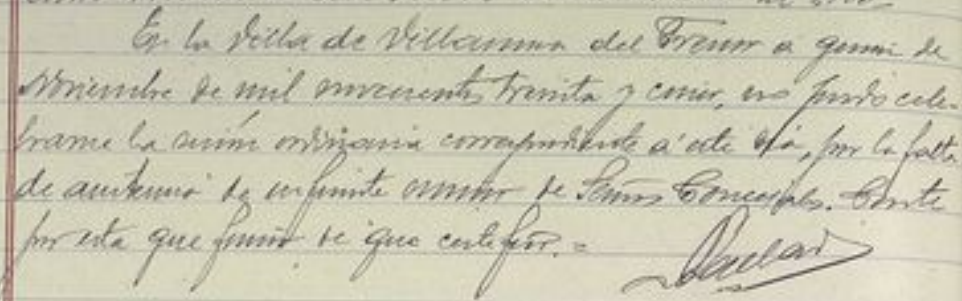 En la Villa de Villanueva del Fresno a quince de
Noviembre de mil novecientos treinta y cinco, no pudo cele-
brarse la sesión ordinaria correspondiente a este día, por la falta
de asistencia de suficiente número de Señores Concejales. Conste
por esta que firmo de que certifico.=